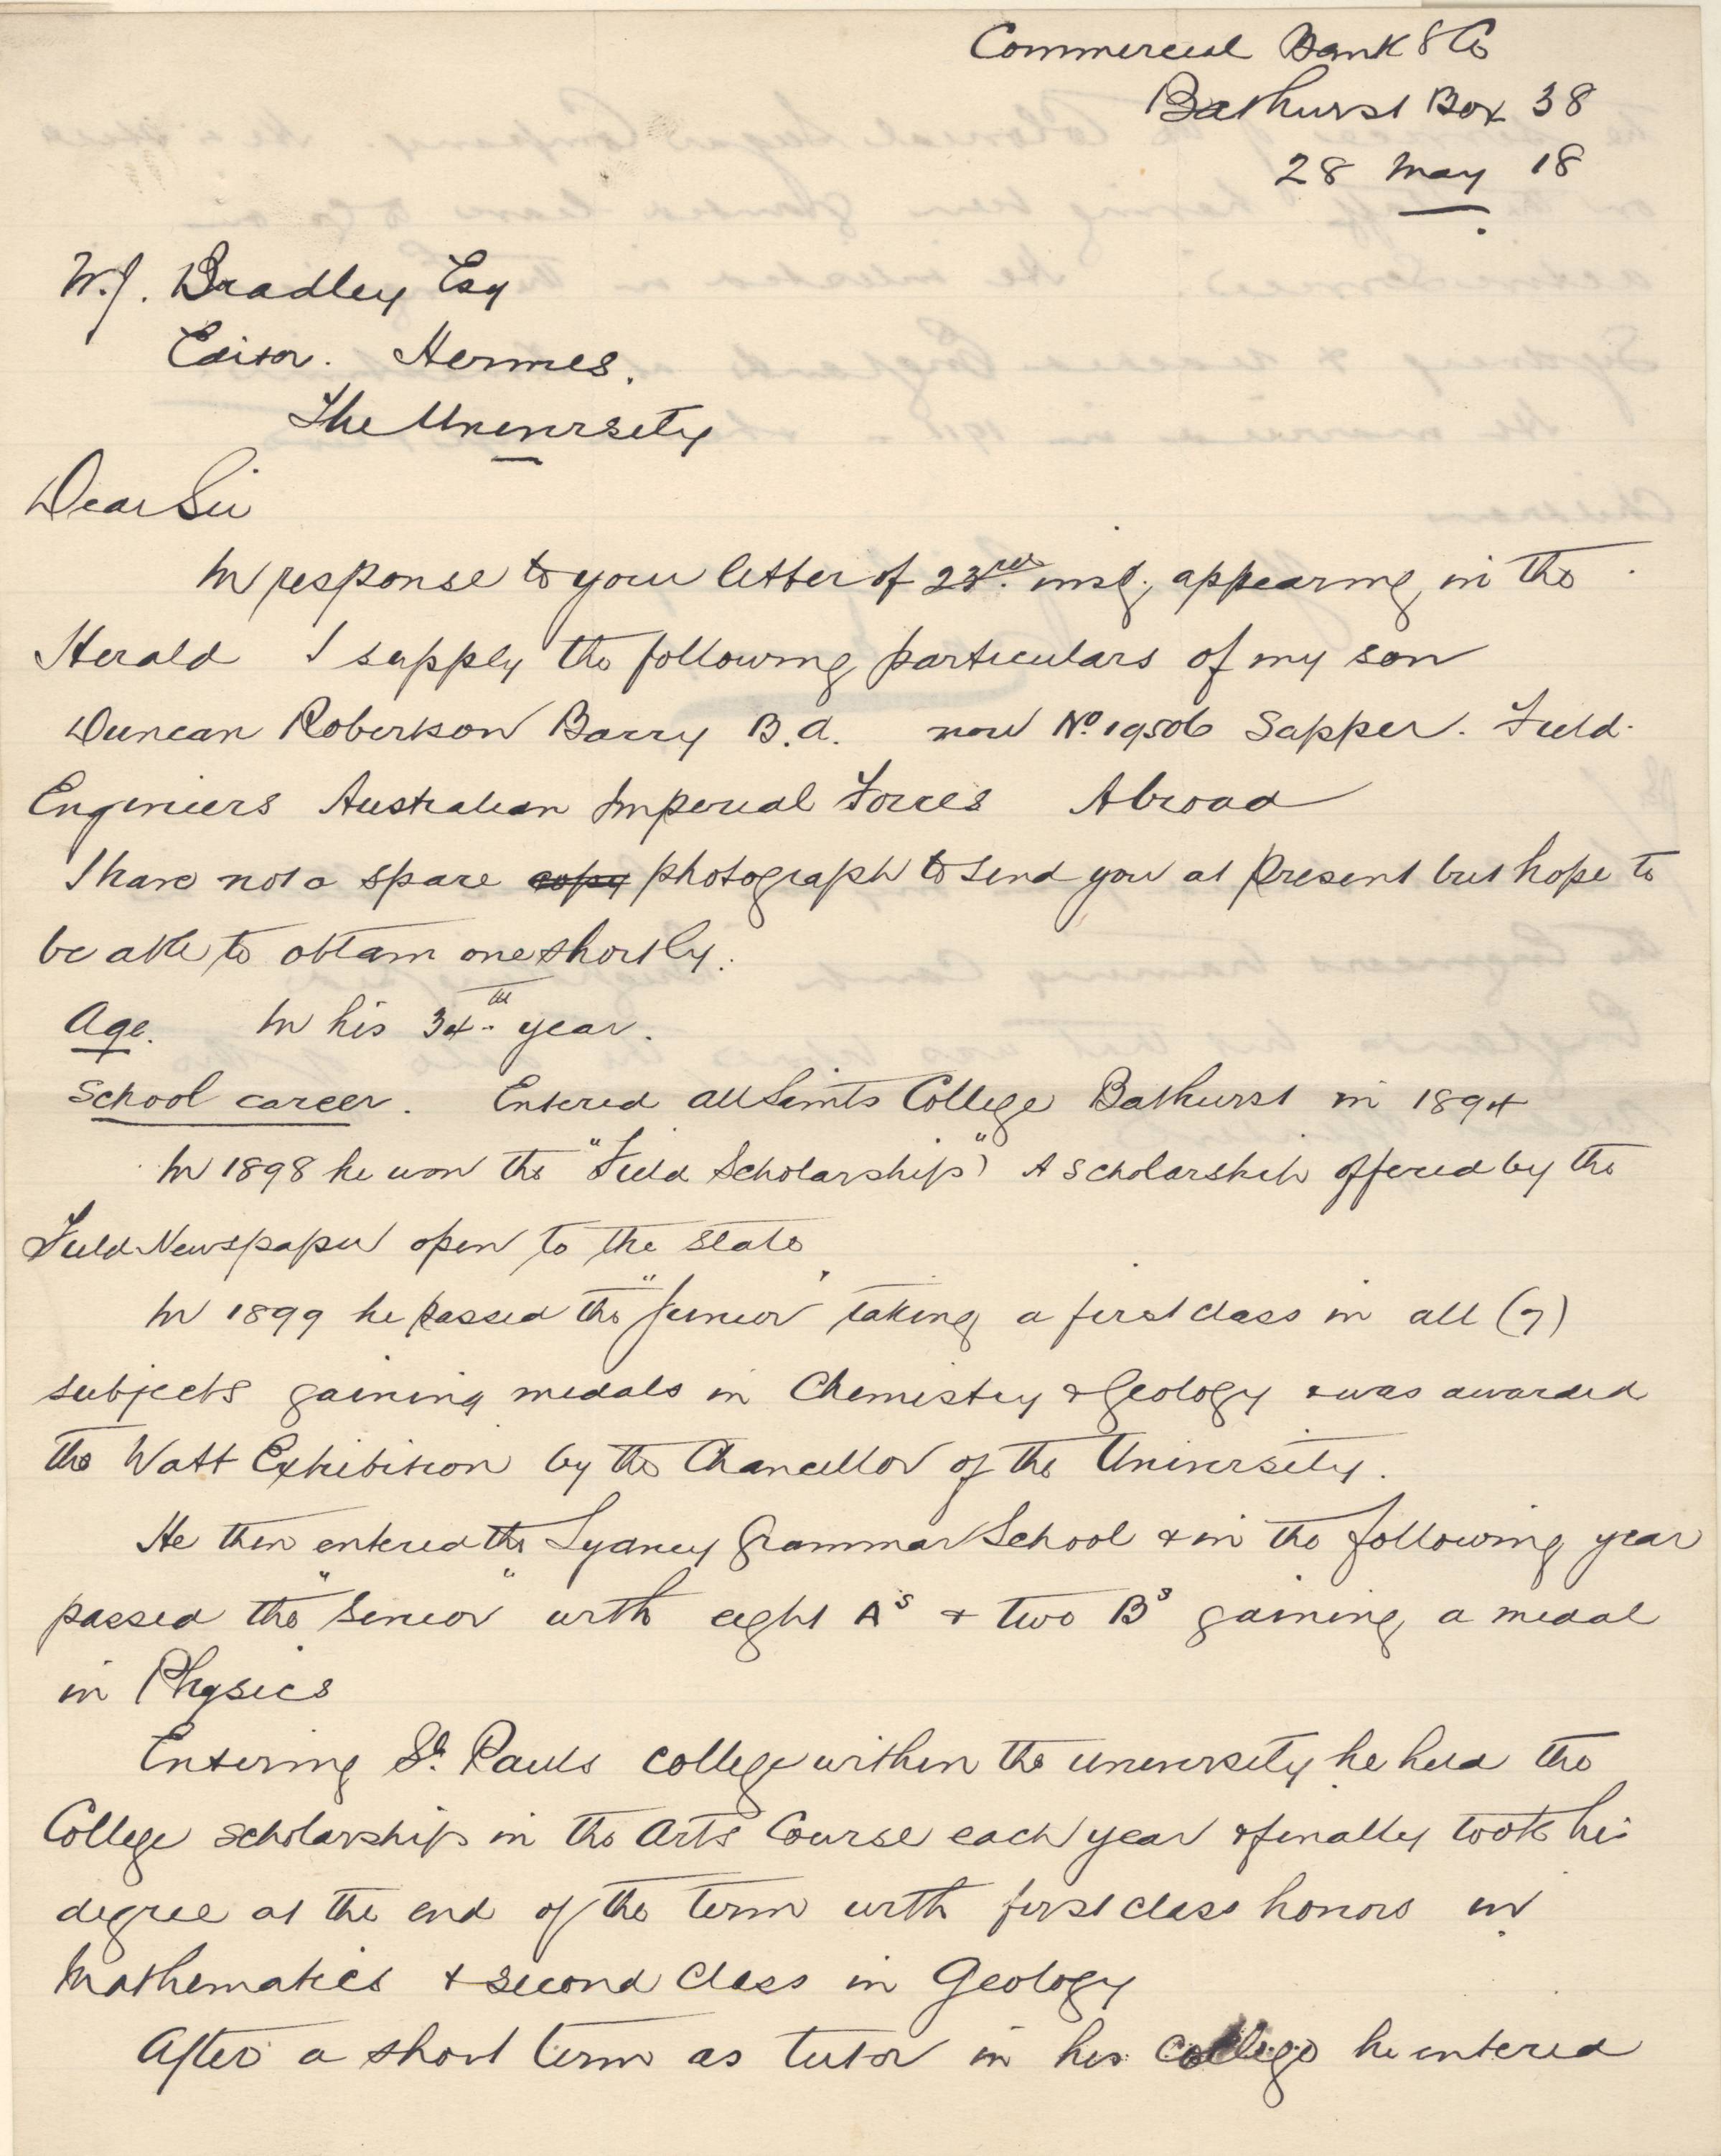 Commercial Bank & Co
Bathurst Box 38
28 May 18
W.J. Bradley Esq
Editor. Hermes.
The University
Dear Sir
In response to your letter of 23rd. inst, appearing in the
Herald I supply the following particulars of my son
Duncan Robertson Barry B.A. now No 19506 Sapper. Field
Engineers Australian Imperial Forces Abroad
I have not a spare copy photograph to send you at present but hope to
be able to obtain one shortly.
Age. In his 34th year.
School career. Entered All Saints College Bathurst in 1894
In 1898 he won the "Field Scholarship" A scholarship offered by the
Field Newspaper open to the State
In 1899 he passed the "Junior" taking a first class in all (7)
subjects gaining medals in Chemistry & Geology & was awarded
the Watt Exhibition by the Chancellor of the University.
He then entered the Sydney Grammar School & in the following year
passed the "Senior" with eight As & two Bs gaining a medal
in Physics
Entering St. Pauls College within the University he held the
College scholarship in the Arts Course each year & finally took his
degree at the end of the term with first class honors in
Mathematics & second class in Geology
After a short term as tutor in his college he entered